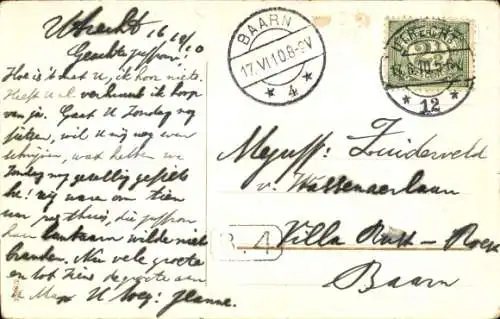 Utrecht 16/6/10
Geachte Juffrou,
Hoe is 't met U, ik hoor niets.
Heeft U al verhuurd ik hoop
van ja. Gaat U Zondag nog
fietsen, wil U mij nog even
schrijven, wat hebben we
Zondag nog gezellig gefietst
hé! wij waren om tien
uur pas thuis, die juffrou
haar lantaarn wilde niet
branden. Nu vele groete
en tot ziens de groete aan
U Ma U toeg: Jeanne.
BAARN
17.VI.10.8-9V
4
UTRECHT
2½
12
Mejuff: Zuiderveld
v. Wassenaerlaan
Villa Rust-Roest
Baarn
B.4